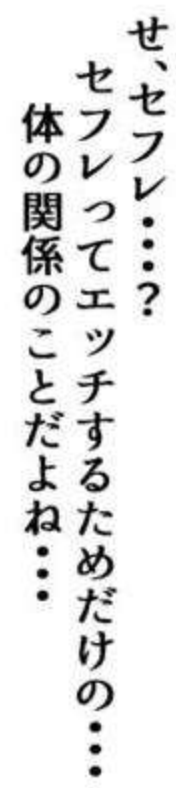 せ、セフレ・・・？
セフレってエッチするためだけの・・・
体の関係のことだよね・・・